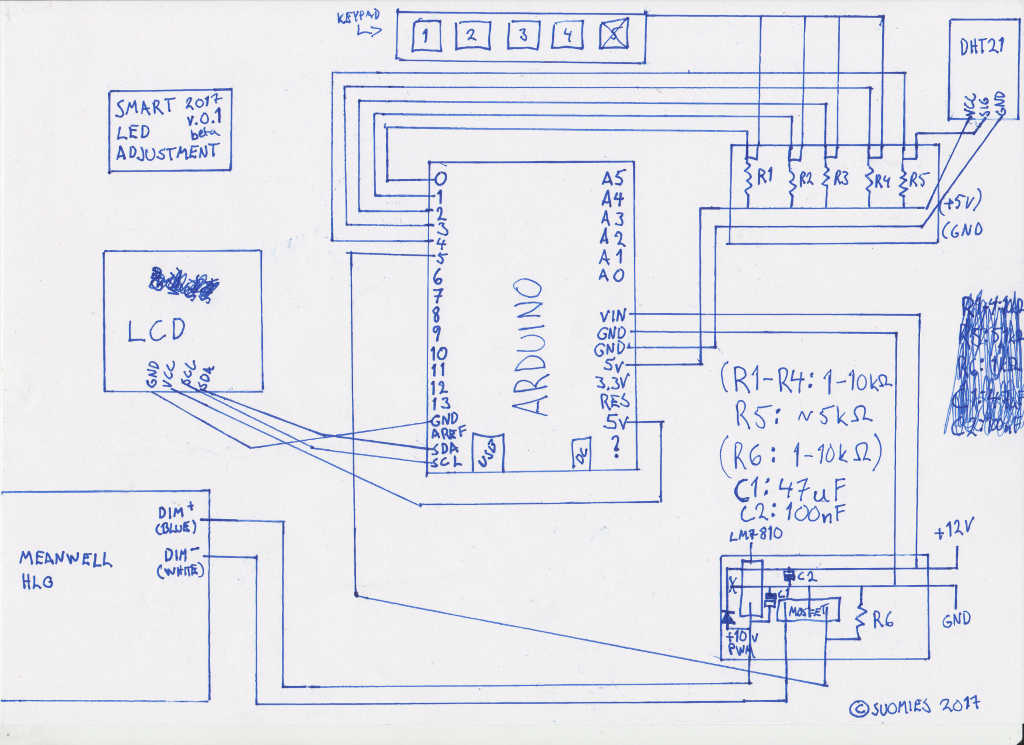 KEYPAD
1 2 3 4
SMART 2017
LED v.0.1
beta
ADJUSTMENT
DHT21
VCC SIG GND
R1 R2 R3 R4 R5
(+5V)
(GND
0
1
2
3
4
5
6
7
8
9
10
11
12
13
GND
AREF
SDA
SCL
ARDUINO
USB
DC
A5
A4
A3
A2
A1
A0
VIN
GND
GND
5V
3,3V
RES
5V
?
LCD
GND VCC SCL SDA
(R1-R4: 1-10kΩ
R5: ~5kΩ
(R6: 1-10kΩ)
C1: 47uF
C2: 100nF
MEANWELL
HLG
DIM+
(BLUE)
DIM-
(WHITE)
LM7810
+12V
X
C2
C1
MOSFET
R6
GND
+10V
PWM
© SUOMIES 2017